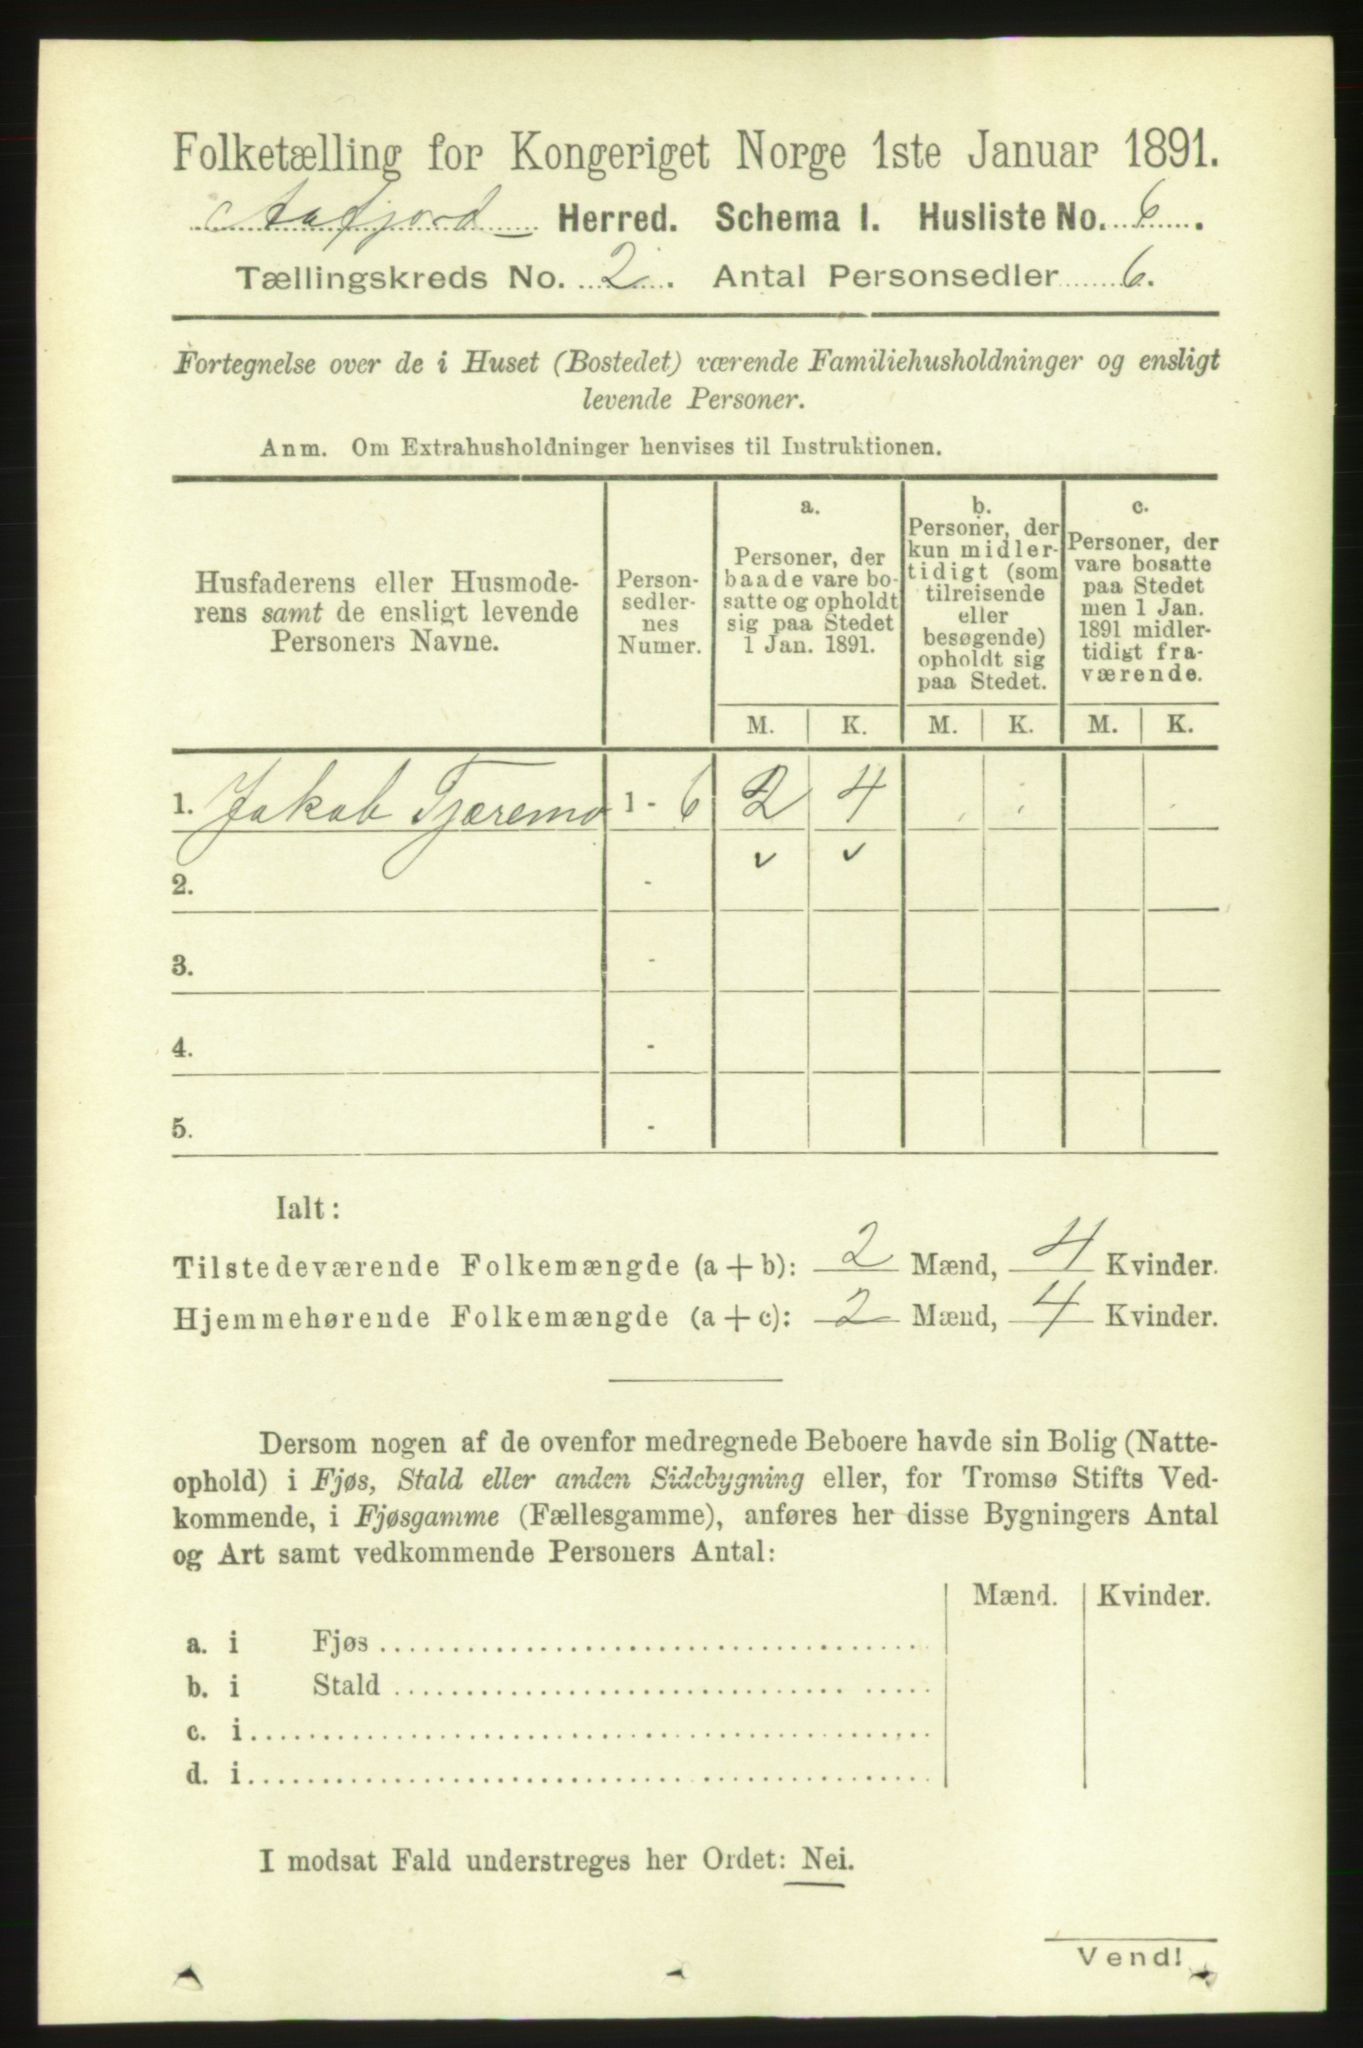 Folketælling for Kongeriget Norge 1ste Januar 1891.
Aafjord Herred. Schema I. Husliste No. 6.
Tællingskreds No. 2. Antal Personsedler 6.
Fortegnelse over de i Huset (Bostedet) værende Familiehusholdninger og ensligt
levende Personer.
Anm. Om Extrahusholdninger henvises til Instruktionen.
Husfaderens eller Husmode-
rens samt de ensligt levende
Personers Navne.
Person-
sedler-
nes
Numer.
a.
Personer, der
baade vare bo-
satte og opholdt
sig paa Stedet
1 Jan. 1891.
b.
Personer, der
kun midler-
tidigt (som
tilreisende
eller
besøgende)
opholdt sig
paa Stedet.
c.
Personer, der
vare bosatte
paa Stedet
men 1 Jan.
1891 midler-
tidigt fra-
værende.
M. K. M. K. M. K.
1. Jakob Tjæremo 1 - 6 2 4
✓ ✓
2. -
3. -
4. -
5. -
Ialt:
Tilstedeværende Folkemængde (a + b): 2 Mænd, 4 Kvinder.
Hjemmehørende Folkemængde (a + c): 2 Mænd, 4 Kvinder.
Dersom nogen af de ovenfor medregnede Beboere havde sin Bolig (Natte-
ophold) i Fjøs, Stald eller anden Sidebygning eller, for Tromsø Stifts Ved-
kommende, i Fjøsgamme (Fællesgamme), anføres her disse Bygningers Antal
og Art samt vedkommende Personers Antal:
Mænd. Kvinder.
a. i Fjøs
b. i Stald
c. i
d. i
I modsat Fald understreges her Ordet: Nei.
Vend!